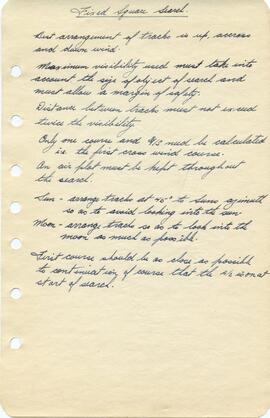 Fixed Square Search.
Best arrangement of tracks is up, accross
and down wind.
Maximum visibility used must take into
account the size of object of search and
must allow a margin of safety.
Distance between tracks must not exceed
twice the visibility.
Only one course and G/S need be calculated
ie. the first cross wind course.
An air plot must be kept throughout
the search.
Sun - arrange tracks at 45° to Suns azimuth
so as to avoid looking into the sun.
Moon - arrange tracks so as to look into the
moon as much as possible.
First course should be as close as possible
to continuation of course that the a/c is on at
start of search.